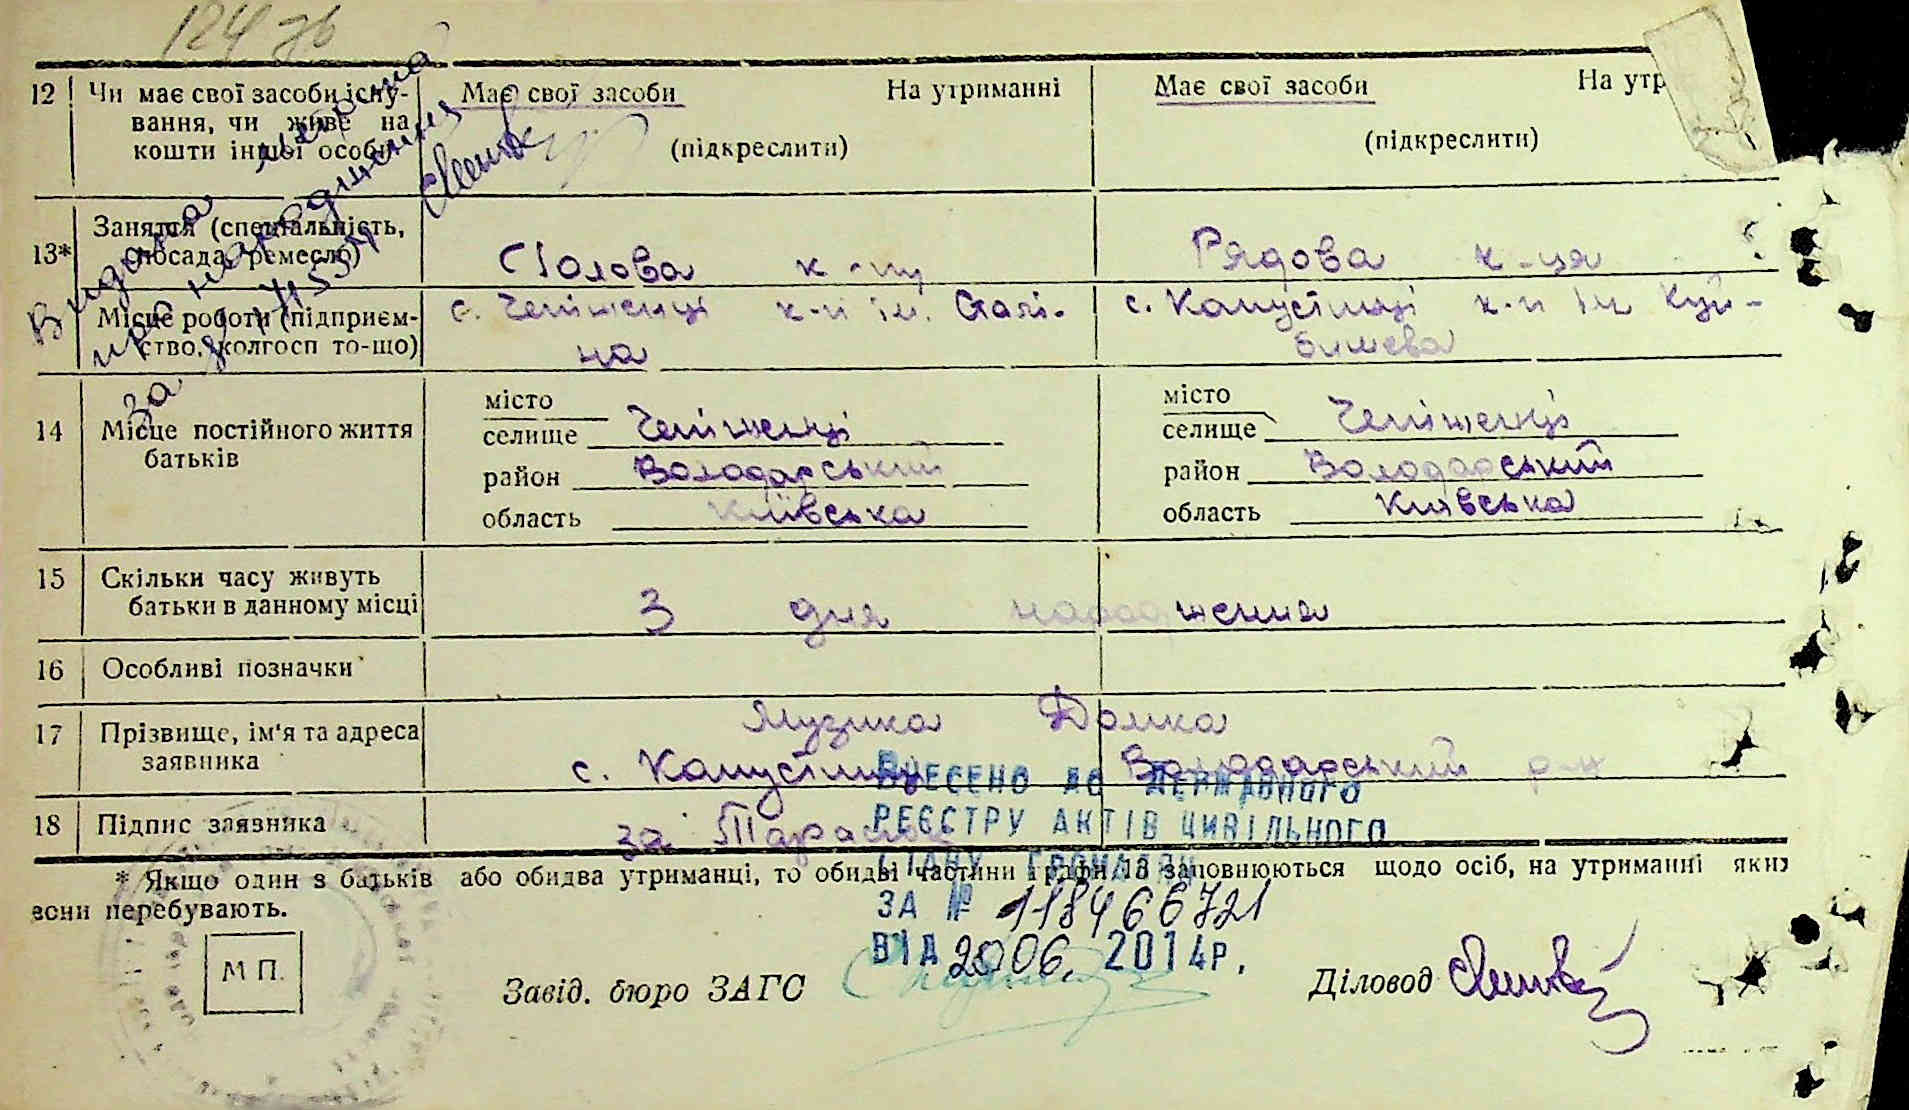 124 зв
12 Чи має свої засоби існу- Має свої засоби На утриманні Має свої засоби На утр
вання, чи живе на
кошти іншої особи (підкреслити) (підкреслити)
Видана метрика
про народження
за №
13* Заняття (спеціальність, посада, ремесло) Голова к-пу Рядова к-ця
Місце роботи (підприєм- с. Чепіженці к-п ім. Сталі- с. Капустинці к-п ім Куй-
ство, колгосп то-що) на бишева
14 Місце постійного життя батьків
місто місто
селище Чепіженці селище Чепіженці
район Володарський район Володарський
область Київська область Київська
15 Скільки часу живуть
батьки в данному місці З дня народження
16 Особливі позначки
17 Прізвище, ім'я та адреса Музика Домка
заявника с. Капустинці Володарський р-н
18 Підпис заявника за
ВНЕСЕНО ДО ДЕРЖАВНОГО
РЕЄСТРУ АКТІВ ЦИВІЛЬНОГО
СТАНУ ГРОМАДЯН
ЗА № 118466721
ВІД 20.06. 2014р.
* Якщо один з батьків або обидва утриманці, то обидві частини графи 13 заповнюються щодо осіб, на утриманні яких
вони перебувають.
М П.
Завід. бюро ЗАГС Діловод